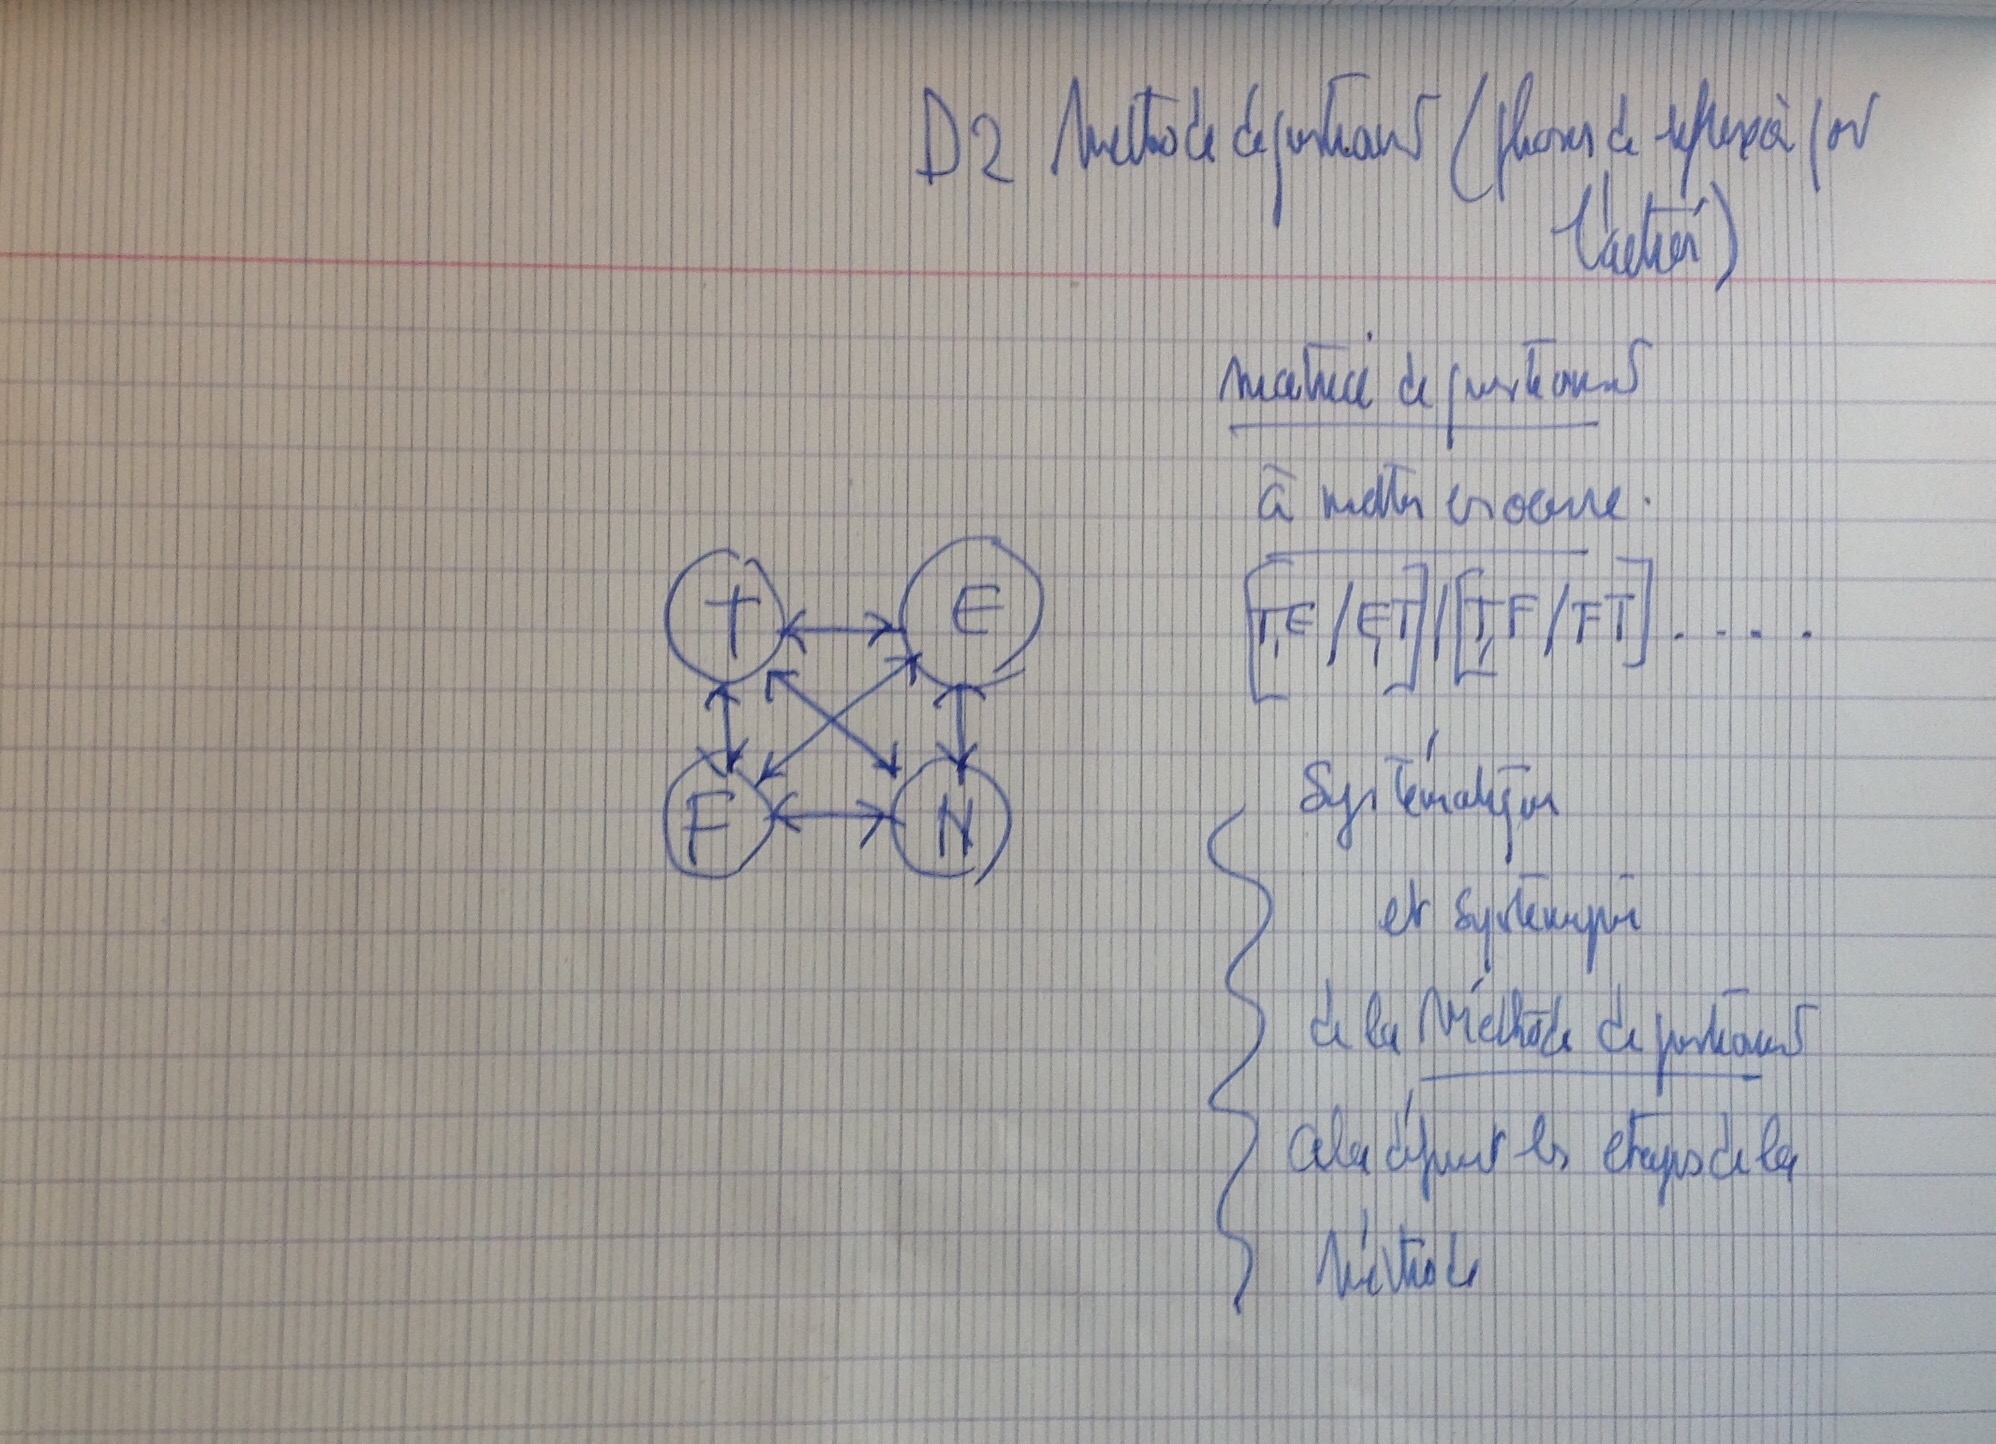 D2 Méthode de questionnt (phases de réflexion pour
l'action)
matrice de questionnt
à mettre en oeuvre.
[TE/ET]/[TF/FT] . . . .
T E
F N
Systématique
et systémique
de la Méthode de questionnt
cela définit les étapes de la
Méthode